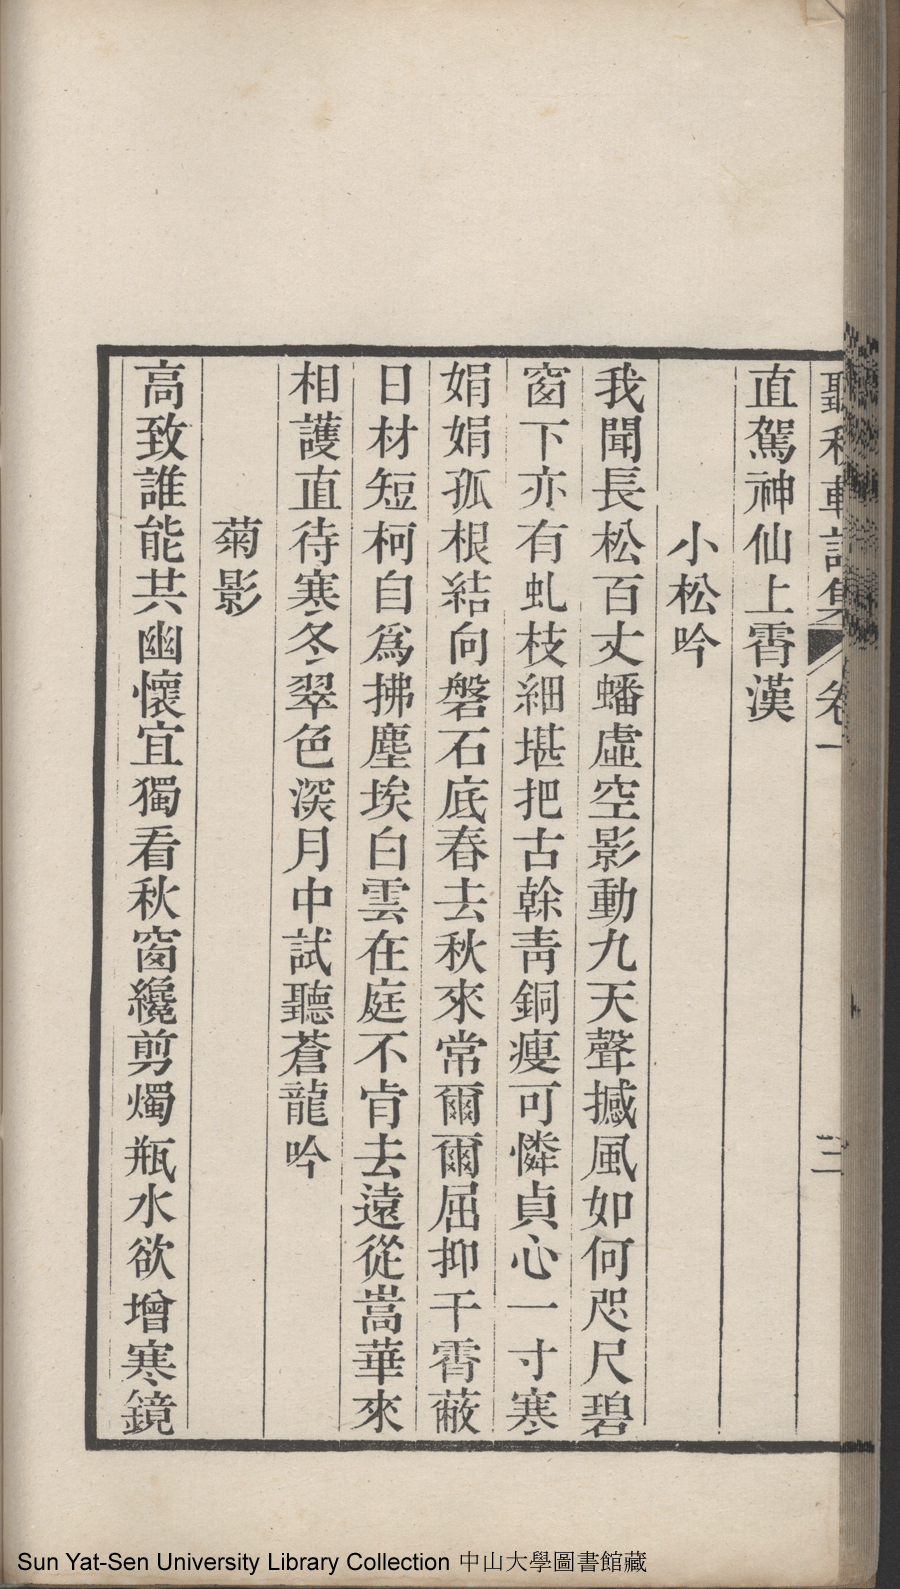 聽秋軒詩集 卷一 三
直駕神仙上霄漢
小松吟
我聞長松百丈蟠虛空影動九天聲撼風如何咫尺碧
窗下亦有虬枝細堪把古榦靑銅瘦可憐貞心一寸寒
娟娟孤根結向磐石底春去秋來常爾爾屈抑干霄蔽
日材短柯自爲拂塵埃白雲在庭不肯去遠從嵩華來
相護直待寒冬翠色深月中試聽蒼龍吟
菊影
高致誰能共幽懷宜獨看秋窗纔剪燭瓶水欲增寒鏡
Sun Yat-Sen University Library Collection 中山大學圖書館藏